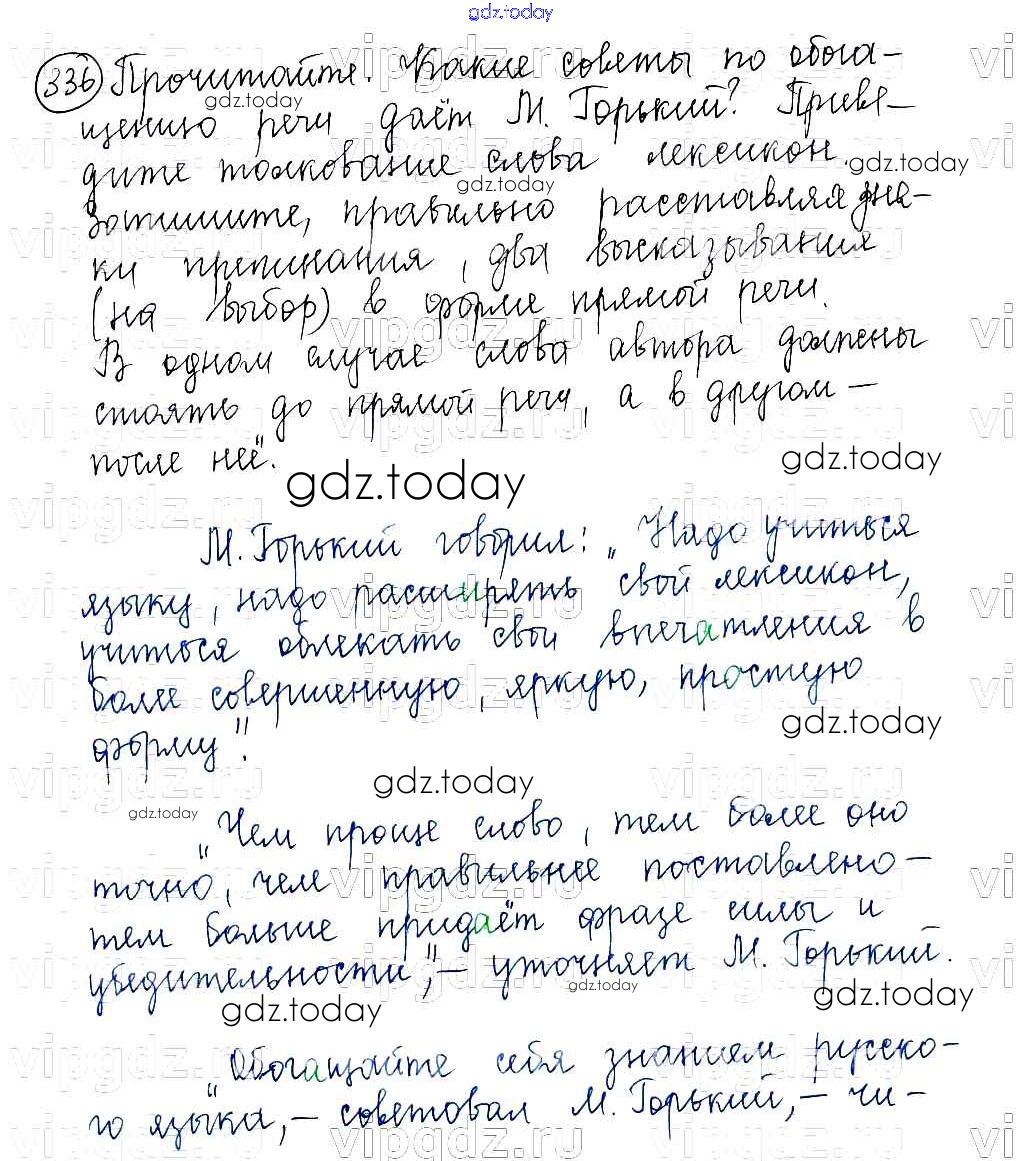 gdz.today
336 Прочитайте. Какие советы по обога-
gdz.today
щению речи даёт М. Горький? Приве-
дите толкование слова лексикон.
gdz.today
gdz.today
Запишите, правильно расставляя зна-
ки препинания, два высказывания
(на выбор) в форме прямой речи.
В одном случае слова автора должны
стоять до прямой речи, а в другом —
после неё".
gdz.today
gdz.today
М. Горький говорил: „Надо учиться
языку, надо расширять свой лексикон,
учиться облекать свои впечатления в
более совершенную, яркую, простую
форму".
gdz.today
gdz.today
gdz.today
„Чем проще слово, тем более оно
точно, чем правильнее поставлено —
тем больше придаёт фразе силы и
убедительности", — уточняет М. Горький.
gdz.today
gdz.today
gdz.today
„Обогащайте себя знанием русско-
го языка, — советовал М. Горький, — чи-
vipgdz.ru